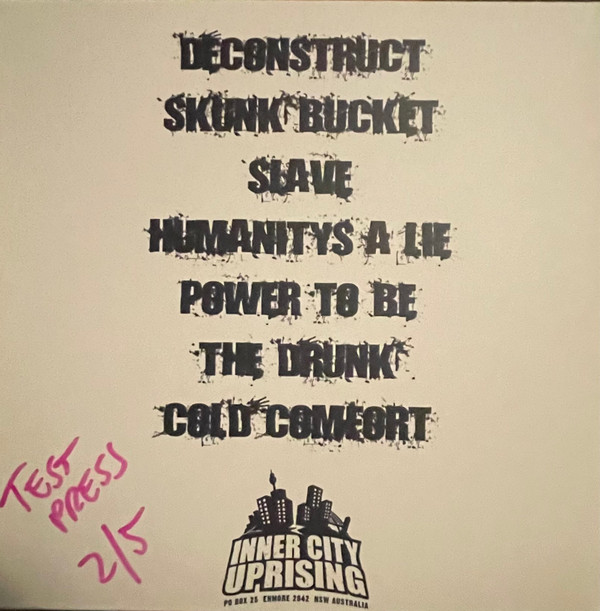 DECONSTRUCT
SKUNK BUCKET
SLAVE
HUMANITYS A LIE
POWER TO BE
THE DRUNK
COLD COMFORT
TEST
PRESS
2/5
INNER CITY
UPRISING
PO BOX 25 ENMORE 2042 NSW AUSTRALIA